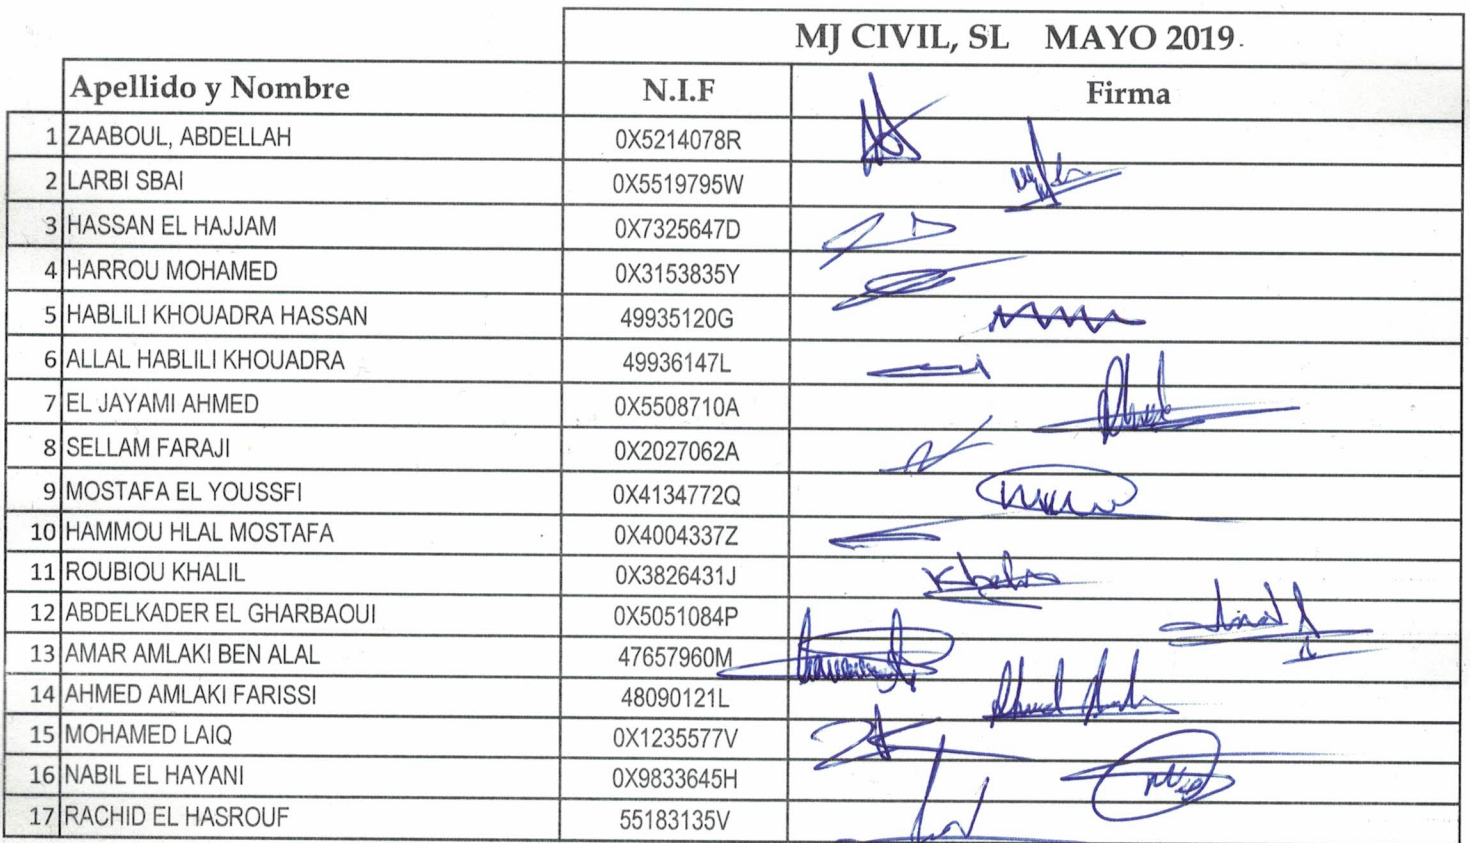 MJ CIVIL, SL MAYO 2019
Apellido y Nombre N.I.F Firma
1 ZAABOUL, ABDELLAH 0X5214078R
2 LARBI SBAI 0X5519795W
3 HASSAN EL HAJJAM 0X7325647D
4 HARROU MOHAMED 0X3153835Y
5 HABLILI KHOUADRA HASSAN 49935120G
6 ALLAL HABLILI KHOUADRA 49936147L
7 EL JAYAMI AHMED 0X5508710A
8 SELLAM FARAJI 0X2027062A
9 MOSTAFA EL YOUSSFI 0X4134772Q
10 HAMMOU HLAL MOSTAFA 0X4004337Z
11 ROUBIOU KHALIL 0X3826431J
12 ABDELKADER EL GHARBAOUI 0X5051084P
13 AMAR AMLAKI BEN ALAL 47657960M
14 AHMED AMLAKI FARISSI 48090121L
15 MOHAMED LAIQ 0X1235577V
16 NABIL EL HAYANI 0X9833645H
17 RACHID EL HASROUF 55183135V